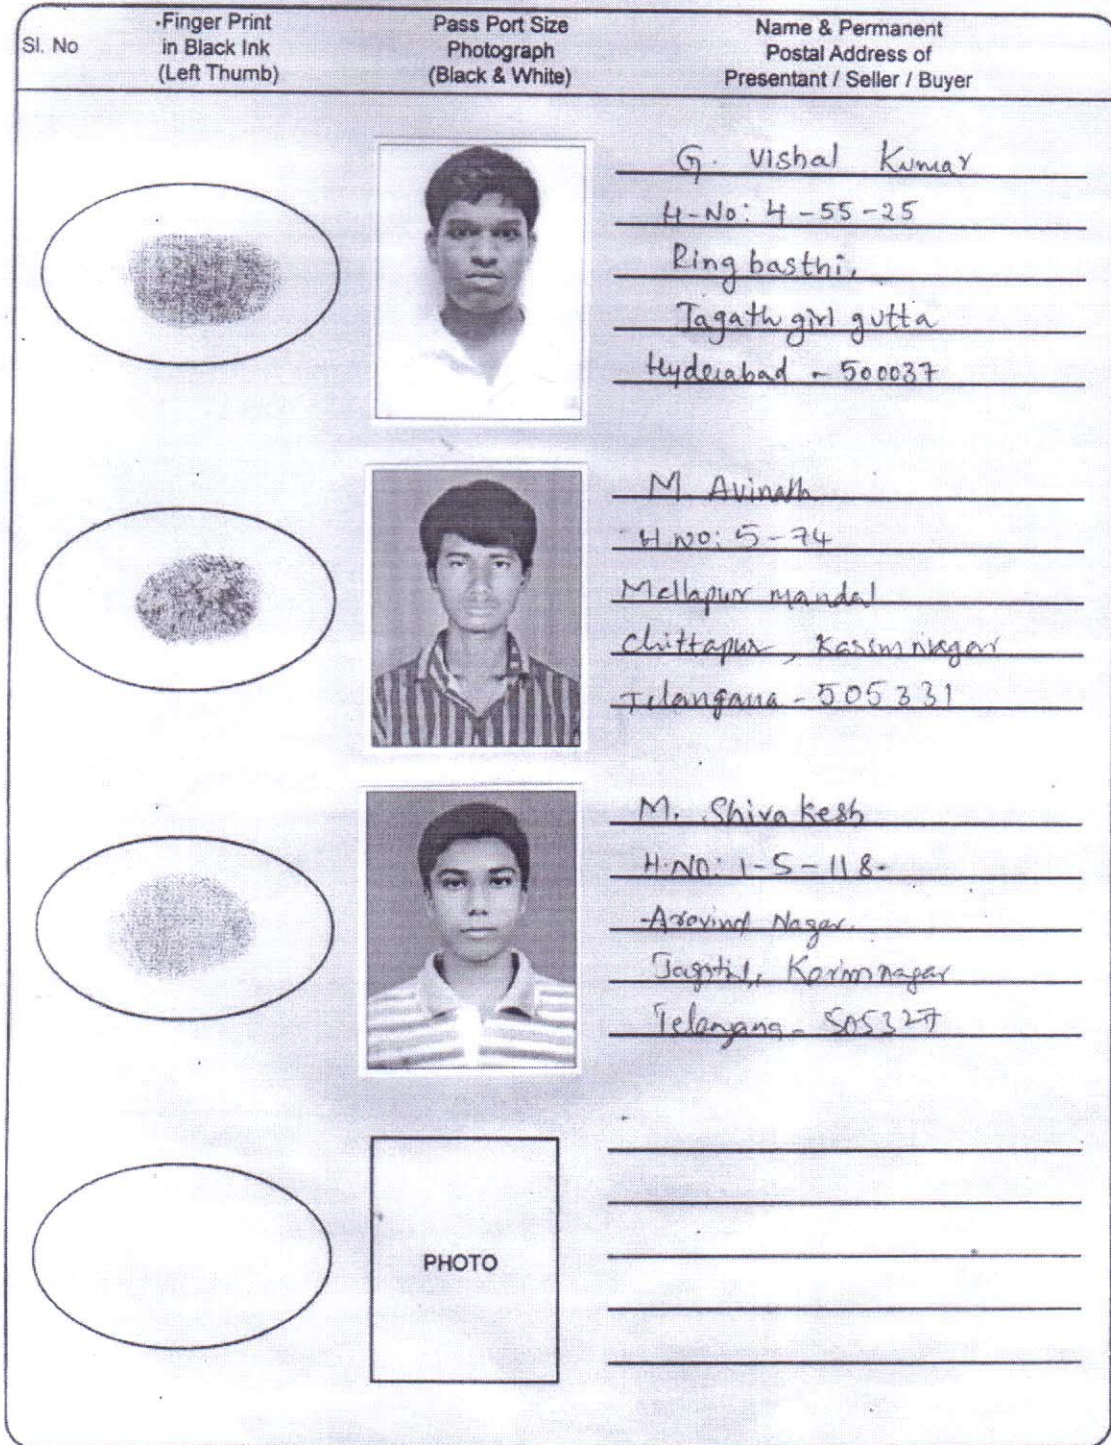 Sl. No
Finger Print
in Black Ink
(Left Thumb)
Pass Port Size
Photograph
(Black & White)
Name & Permanent
Postal Address of
Presentant / Seller / Buyer
G. Vishal Kumar
H-No: 4-55-25
Ring basthi,
Jagath giri gutta
Hyderabad - 500037
M. Avinash
H.NO: 5-74
Mallapur mandal
Chittapur, Karimnagar
Telangana - 505331
M. Shiva kesh
H.NO: 1-5-118-
Aravind Nagar.
Jagtial, Karimnagar
Telangana - 505327
PHOTO